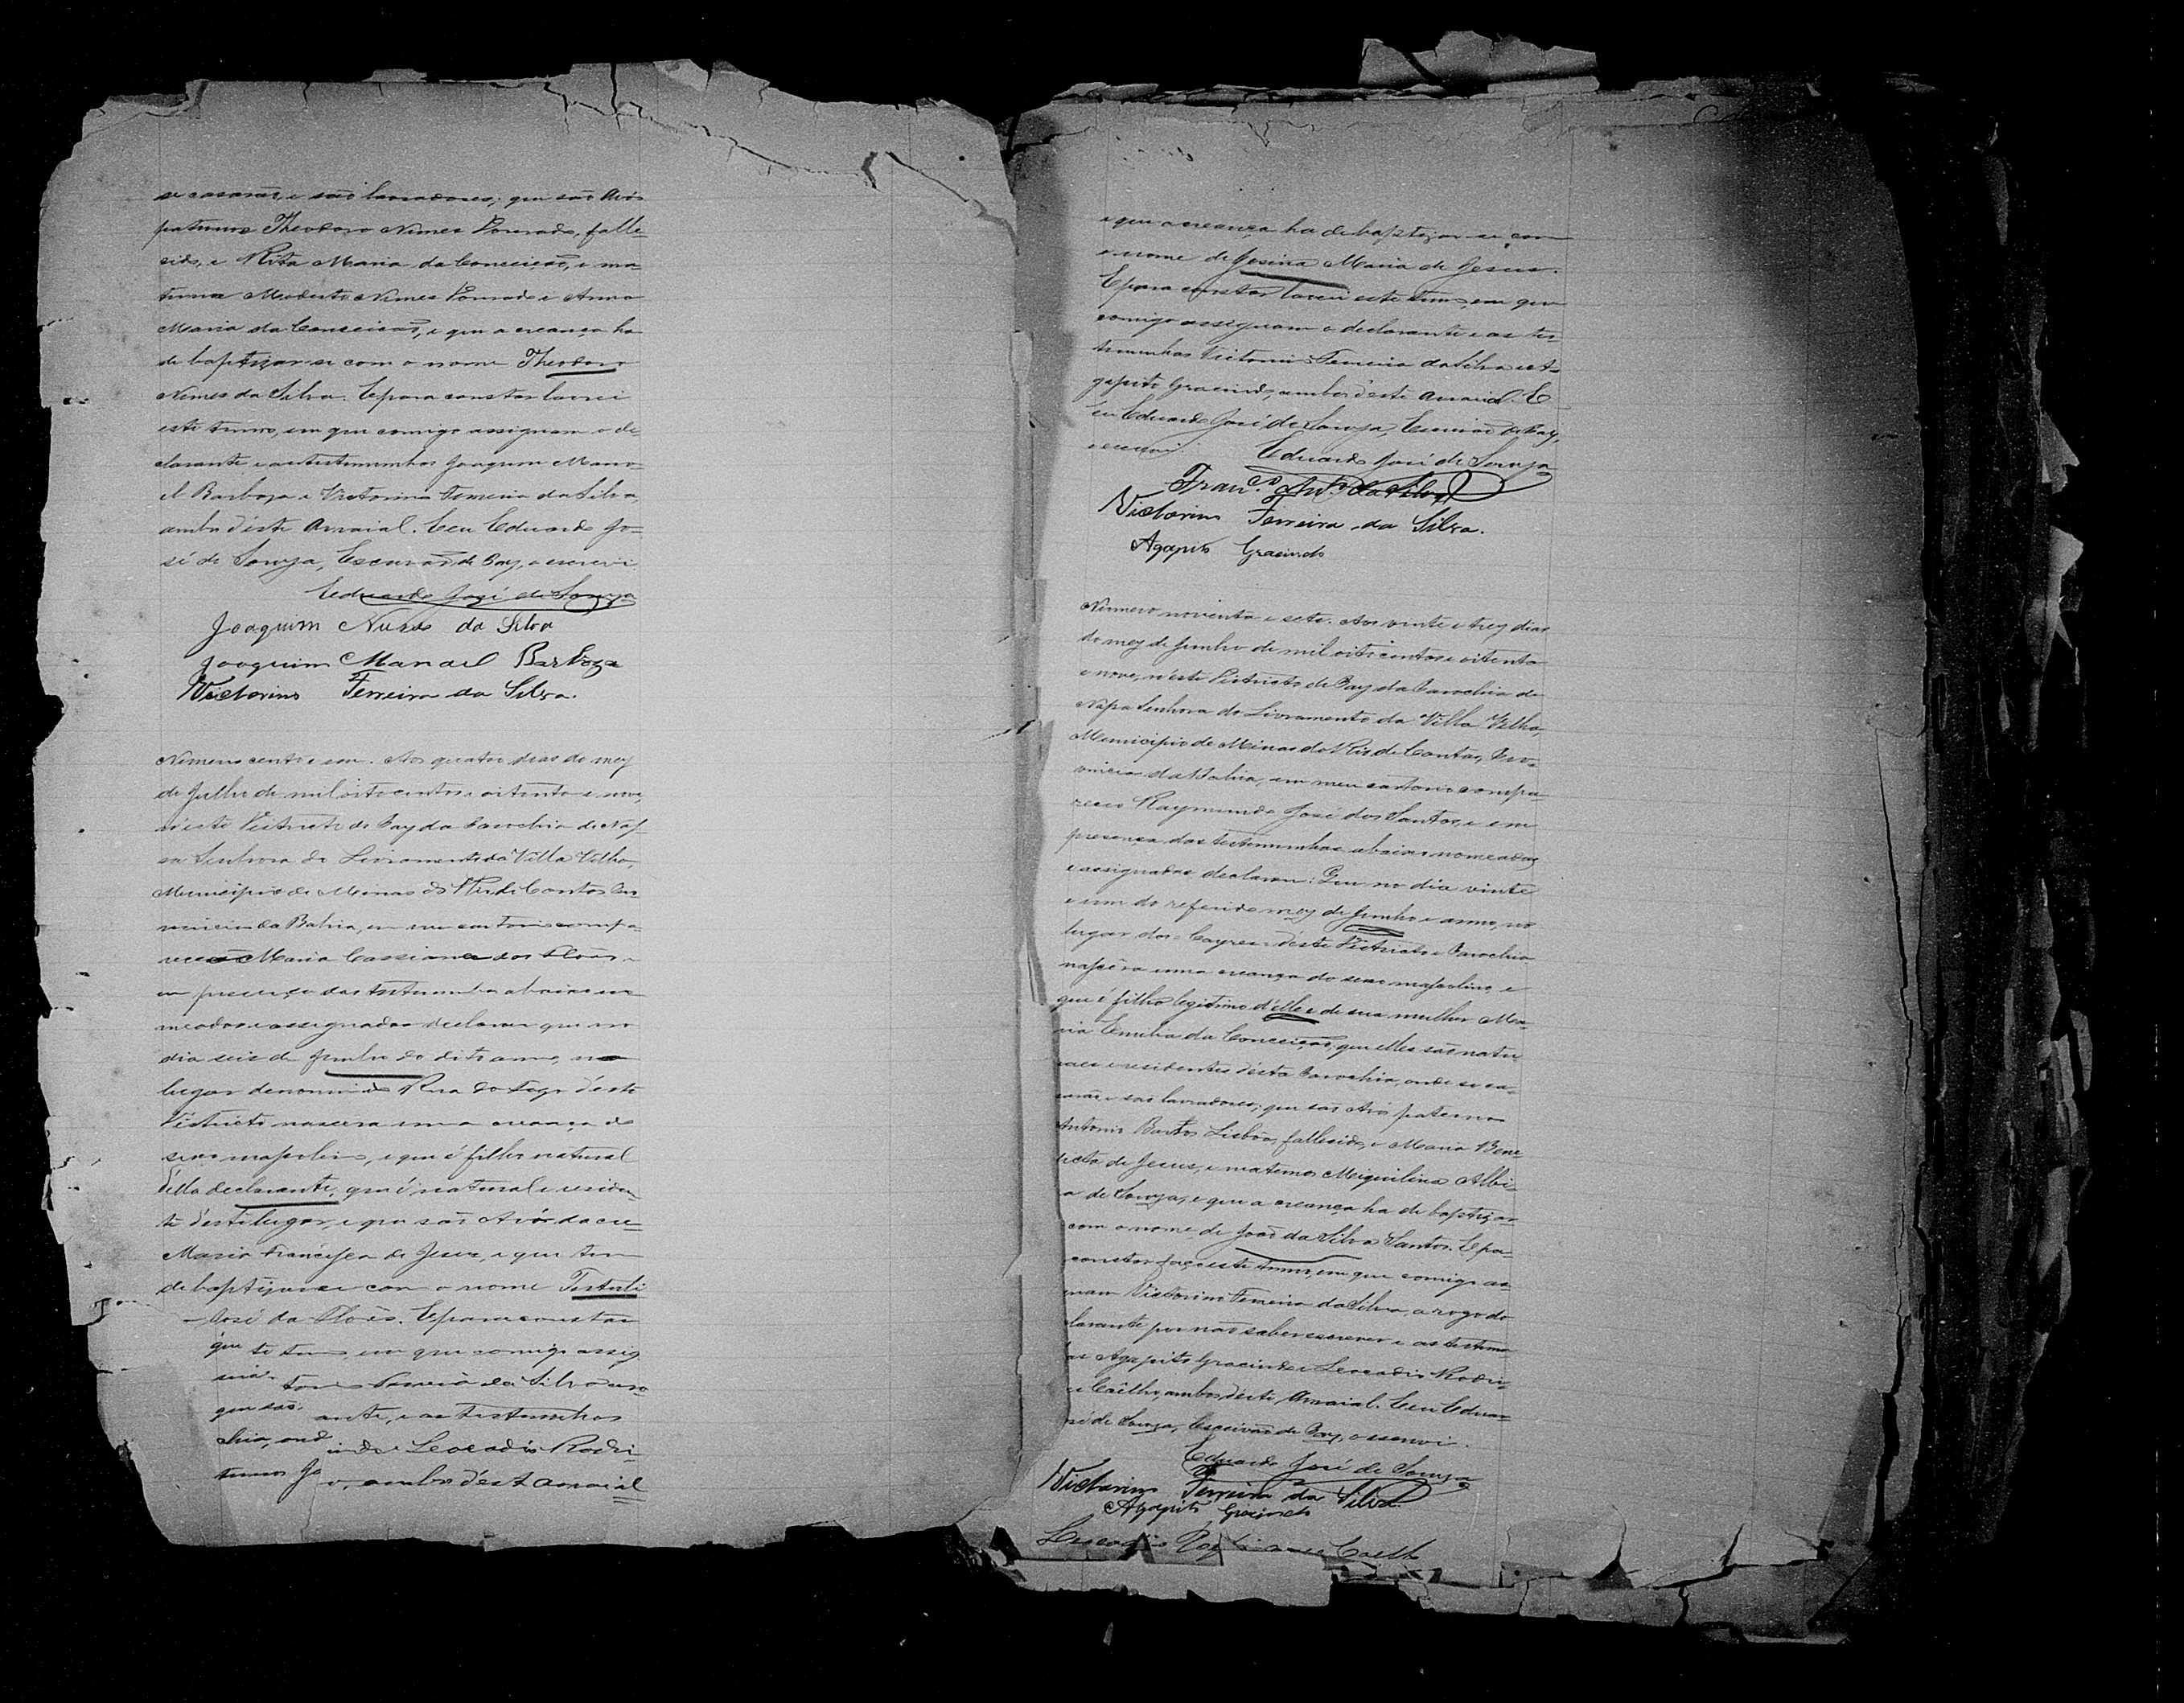 se casarão, e são lavradores; que são Avós
paternos Theodoro Nunes Dourado, falle-
cido, e Rita Maria da Conceição, e ma-
ternos Modesto Nunes Dourado e Anna
Maria da Conceição, e que a creança ha
de baptizar-se com o nome Theodoro
Nunes da Silva. E para constar lavrei
este termo, em que comigo assignam o de-
clarante e as testemunhas Joaquim Mano-
el Barboza e Victorino Ferreira da Silva,
ambos d'este Arraial. E eu Eduardo Jo-
sé de Souza, Escrivão de Paz, o escrevi.
Eduardo José de Souza
Joaquim Nunes da Silva
Joaquim Manoel Barboza
Victorino Ferreira da Silva.
Numero cento e um. Aos quatro dias do mez
de Julho de mil oito centos e oitenta e nove,
n'este Districto de Paz da Parochia de Nos-
sa Senhora do Livramento da Villa Velha
Municipio de Minas do Rio de Contas Pro-
vincia da Bahia, em meu cartorio compa-
receo Maria Cassiana
em presença das testemunhas abaixo no-
meadas e assignadas declarou que no
dia seis de Junho do dito anno, no
lugar denominado Rua do Fogo d'este
Districto nascera uma creança do
sexo masculino, e que é filho natural
d'ella declarante, que é natural e residen-
te d'este lugar, e que são Avós da cre-
Maria Francisca de Jesus, e que tem
de baptizar-se com o nome
José E para constar
que te termo, em que comigo assig
Ferreira da Silva
que são ante, e as testemunhas
chia, ond Leocadio Rodri-
ternos Jo o, ambos d'este Arraial
e que a creança ha de baptizar-se com
o nome de Gesina Maria de Jesus.
E para constar lavrei este termo, em que
comigo assignam o declarante e as tes-
temunhas Victorino Ferreira da Silva e A-
gapito Gracindo, ambos d'este Arraial. E
eu Eduardo José de Souza, Escrivão de Paz,
o escrevi. Eduardo José de Souza
Fran.co Ant.o da Silva
Victorino Ferreira da Silva.
Agapito Gracindo
Numero noventa e sete. Aos vinte e trez dias
do mez de Junho de mil oito centos e oitenta
e nove, n'este Districto de Paz da Parochia de
Nossa Senhora do Livramento da Villa Velha,
Municipio de Minas do Rio de Contas, Pro-
vincia da Bahia, em meu cartorio compa-
receo Raymundo José dos Santos, e em
presença das testemunhas abaixo nomeadas
e assignadas declarou: Que no dia vinte
e um do referido mez de Junho e anno, no
lugar dos d'este Districto e Parochia
nascêra uma creança do sexo masculino, e
que é filho legitimo d'elle e de sua mulher Ma-
ria Emilia da Conceição; que elles são natu-
raes e residentes d'esta Parochia, onde se ca-
sarão, e são lavradores; que são Avós paternos
Antonio Bastos Lisbôa, fallecido, e Maria Bene-
dicta de Jesus, e maternos Albi-
a de Souza, e que a creança ha de baptizar
com o nome de João da Silva Santos. E pa-
constar faço este termo, em que comigo as-
gnam Victorino Ferreira da Silva, a rogo do
clarante por não saber escrever e as testemu
has Agapito Gracindo e Leocadio Rodri-
es Coêlho, ambos d'este Arraial. E eu Eduar-
osé de Souza, Escrivão de Paz, o escrevi.
Eduardo José de Souza
Victorino Ferreira da Silva.
Agapito Gracindo
Leocadio Rodrigues Coelho